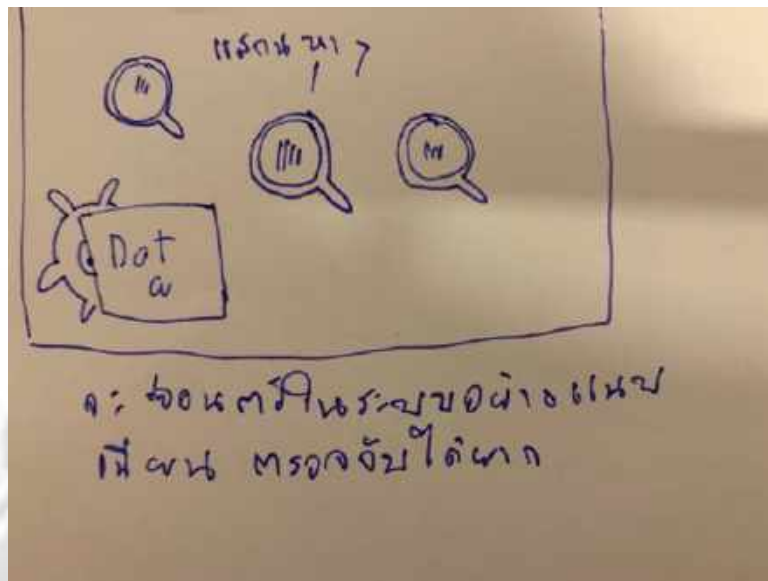 แสกนหา
Dat
a
จะซ่อนตัวในระบบอย่างแนบ
เนียน ตรวจจับได้ยาก